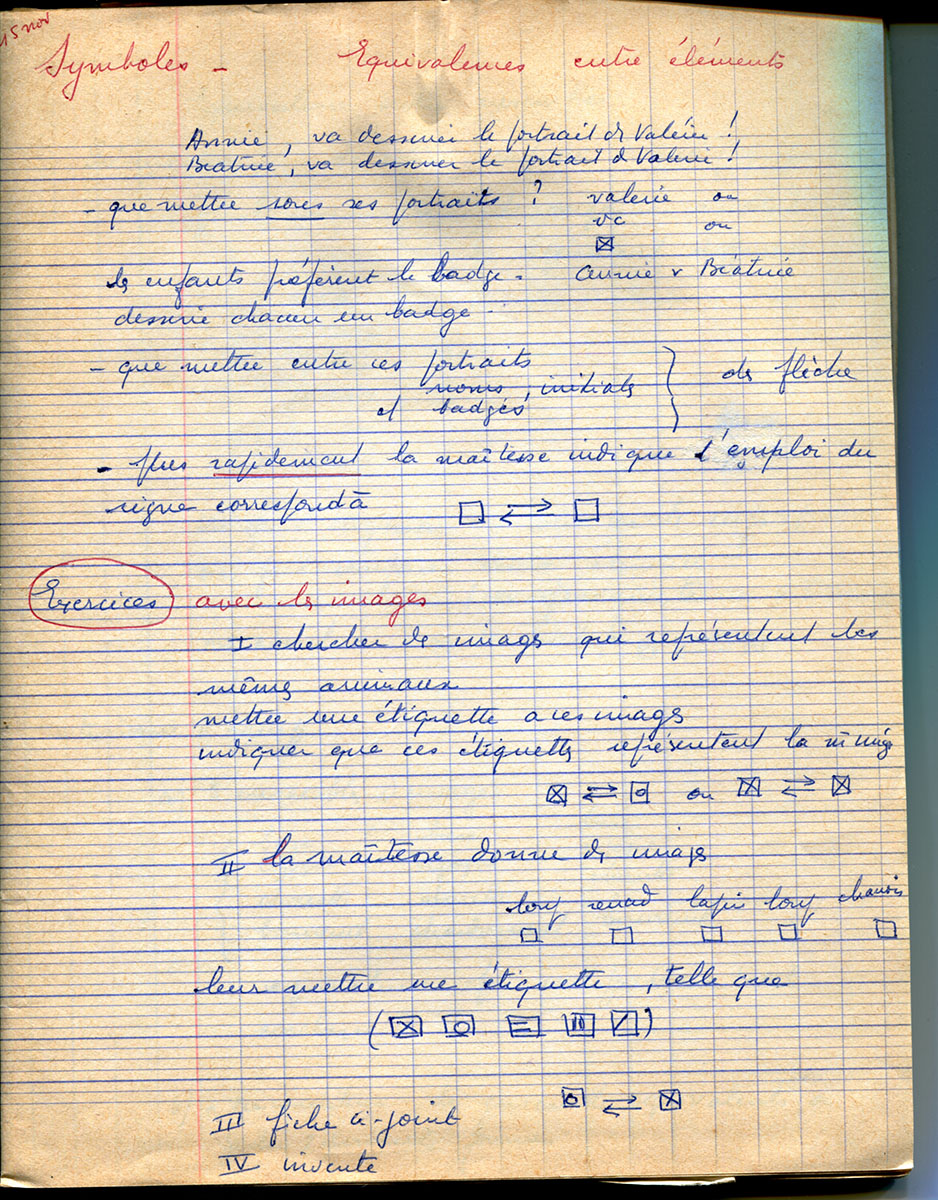 15 nov
Symboles - Equivalences entre éléments
Annie, va dessiner le portrait de Valérie !
Béatrice, va dessiner le portrait de Valérie !
- que mettre sous ses portraits ? valérie ou
vc ou
les enfants préfèrent le badge. Annie & Béatrice
dessine chacun un badge.
- que mettre entre ces portraits
noms, initiales } des flèche
et badges
- plus rapidement la maîtesse indique l'emploi du
signe correspondà
Exercices avec les images
I chercher des images qui représentent les
mêmes animaux
mettre une étiquette a ces images
indiquer que ces étiquettes représentent la m
ou
II la maîtesse donne des images
loup renard lapin loup
leur mettre une étiquette, telle que
III fiche ci-joint
IV invente